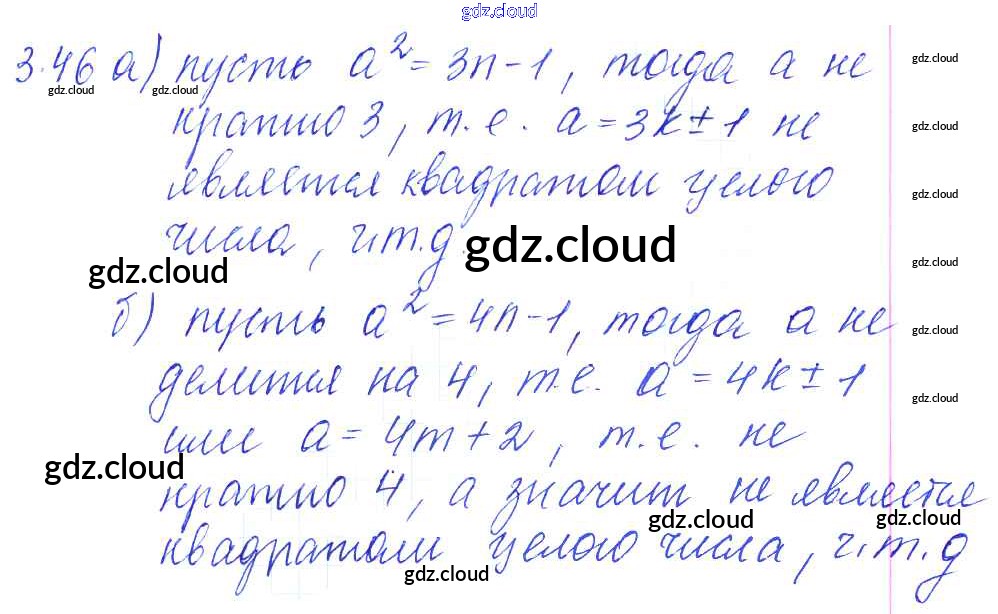 gdz.cloud
3.46 а) пусть a² = 3n - 1, тогда a не
gdz.cloud
gdz.cloud gdz.cloud
кратно 3, т.е. a = 3k ± 1 не
gdz.cloud
является квадратом целого
gdz.cloud
числа, ч.т.д.
gdz.cloud
gdz.cloud gdz.cloud
б) пусть a² = 4n - 1, тогда a не
gdz.cloud
делится на 4, т.е. a = 4k ± 1
gdz.cloud
или a = 4m + 2, т.е. не
gdz.cloud
кратно 4, а значит не является
gdz.cloud gdz.cloud
квадратом целого числа, ч.т.д
gdz.cloud